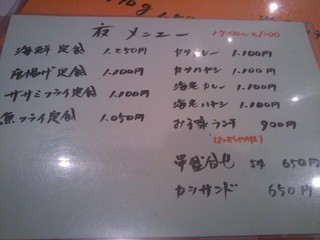 夜 メニュー 17:00~21:00
海鮮定食 1.250円
唐揚げ定食 1.100円
ササミフライ定食 1.100円
魚フライ定食 1.050円
カツカレー 1.100円
カツハヤシ 1.100円
海老カレー 1.100円
海老ハヤシ 1.100円
お子様ランチ 900円
串盛合せ 5本 650円
カツサンド 650円